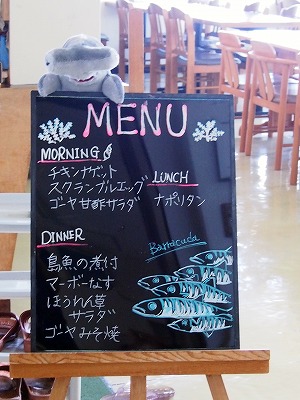 MENU
MORNING
チキンナゲット
スクランブルエッグ
ゴーヤ甘酢サラダ
LUNCH
ナポリタン
DINNER
島魚の煮付
マーボーなす
ほうれん草
サラダ
ゴーヤみそ焼
Barracuda